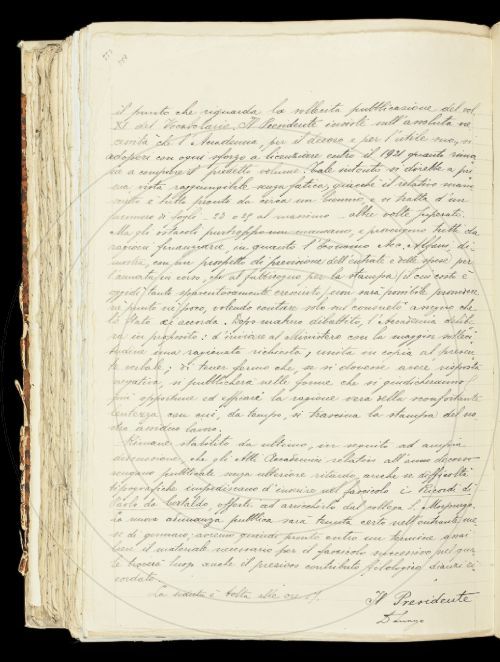 il punto che riguarda la sollecita pubblicazione del vol.
XI del Vocabolario. Il Presidente insiste sull'assoluta ne-
cessità che l'Accademia, per il decoro e per l'utile suo, si
adoperi con ogni sforzo a licenziare entro il 1921 quanto rima-
ne a compiere il predetto volume. Tale intento si direbbe a pri-
ma vista raggiungibile senza fatica, giacché il relativo mano-
scritto è tutto pronto da circa un biennio, e si tratta d'un
numero di fogli - 23 o 25 al massimo - altre volte superato.
Ma gli ostacoli purtroppo non mancano, e provengono tutti da
ragioni finanziarie, in quanto l'Economo Acc. Alfani, di-
mostra, con un prospetto di previsione dell'entrate e delle spese per
l'annata in corso, che al fabbisogno per la stampa (il cui costo è
oggidì tanto spaventosamente cresciuto) non sarà possibile provvede-
re punto né poco, volendo contare solo sul consueto assegno che
lo Stato ci accorda. Dopo maturo dibattito, l'Accademia delibe-
ra in proposito: d'inviare al Ministero con la maggior solleci-
tudine una ragionata richiesta, unita in copia al presen-
te verbale; di tener fermo che, se si dovesse avere risposta
negativa, si pubblicherà nelle forme che si giudicheranno
più opportune ed efficaci la ragione vera della sconfortante
lentezza con cui, da tempo, si trascina la stampa del no-
stro assiduo lavoro.
Rimane stabilito da ultimo, in seguito ad ampia
discussione, che gli Atti Accademici relativi all'anno decorso
vengano pubblicati senza ulteriore ritardo, anche se difficoltà
tipografiche impediscano d'inserire nel fascicolo i Ricordi di
Paolo da Certaldo, offerti ad arricchirlo dal collega S. Morpurgo.
La nuova adunanza pubblica sarà tenuta certo nell'entrante me-
se di gennaio; avremo quindi pronto entro un termine quasi
breve il materiale necessario per il fascicolo successivo nel qua-
le troverà luogo anche il prezioso contributo filologico dianzi ri-
cordato.
La seduta è tolta alle ore 17.
Il Presidente